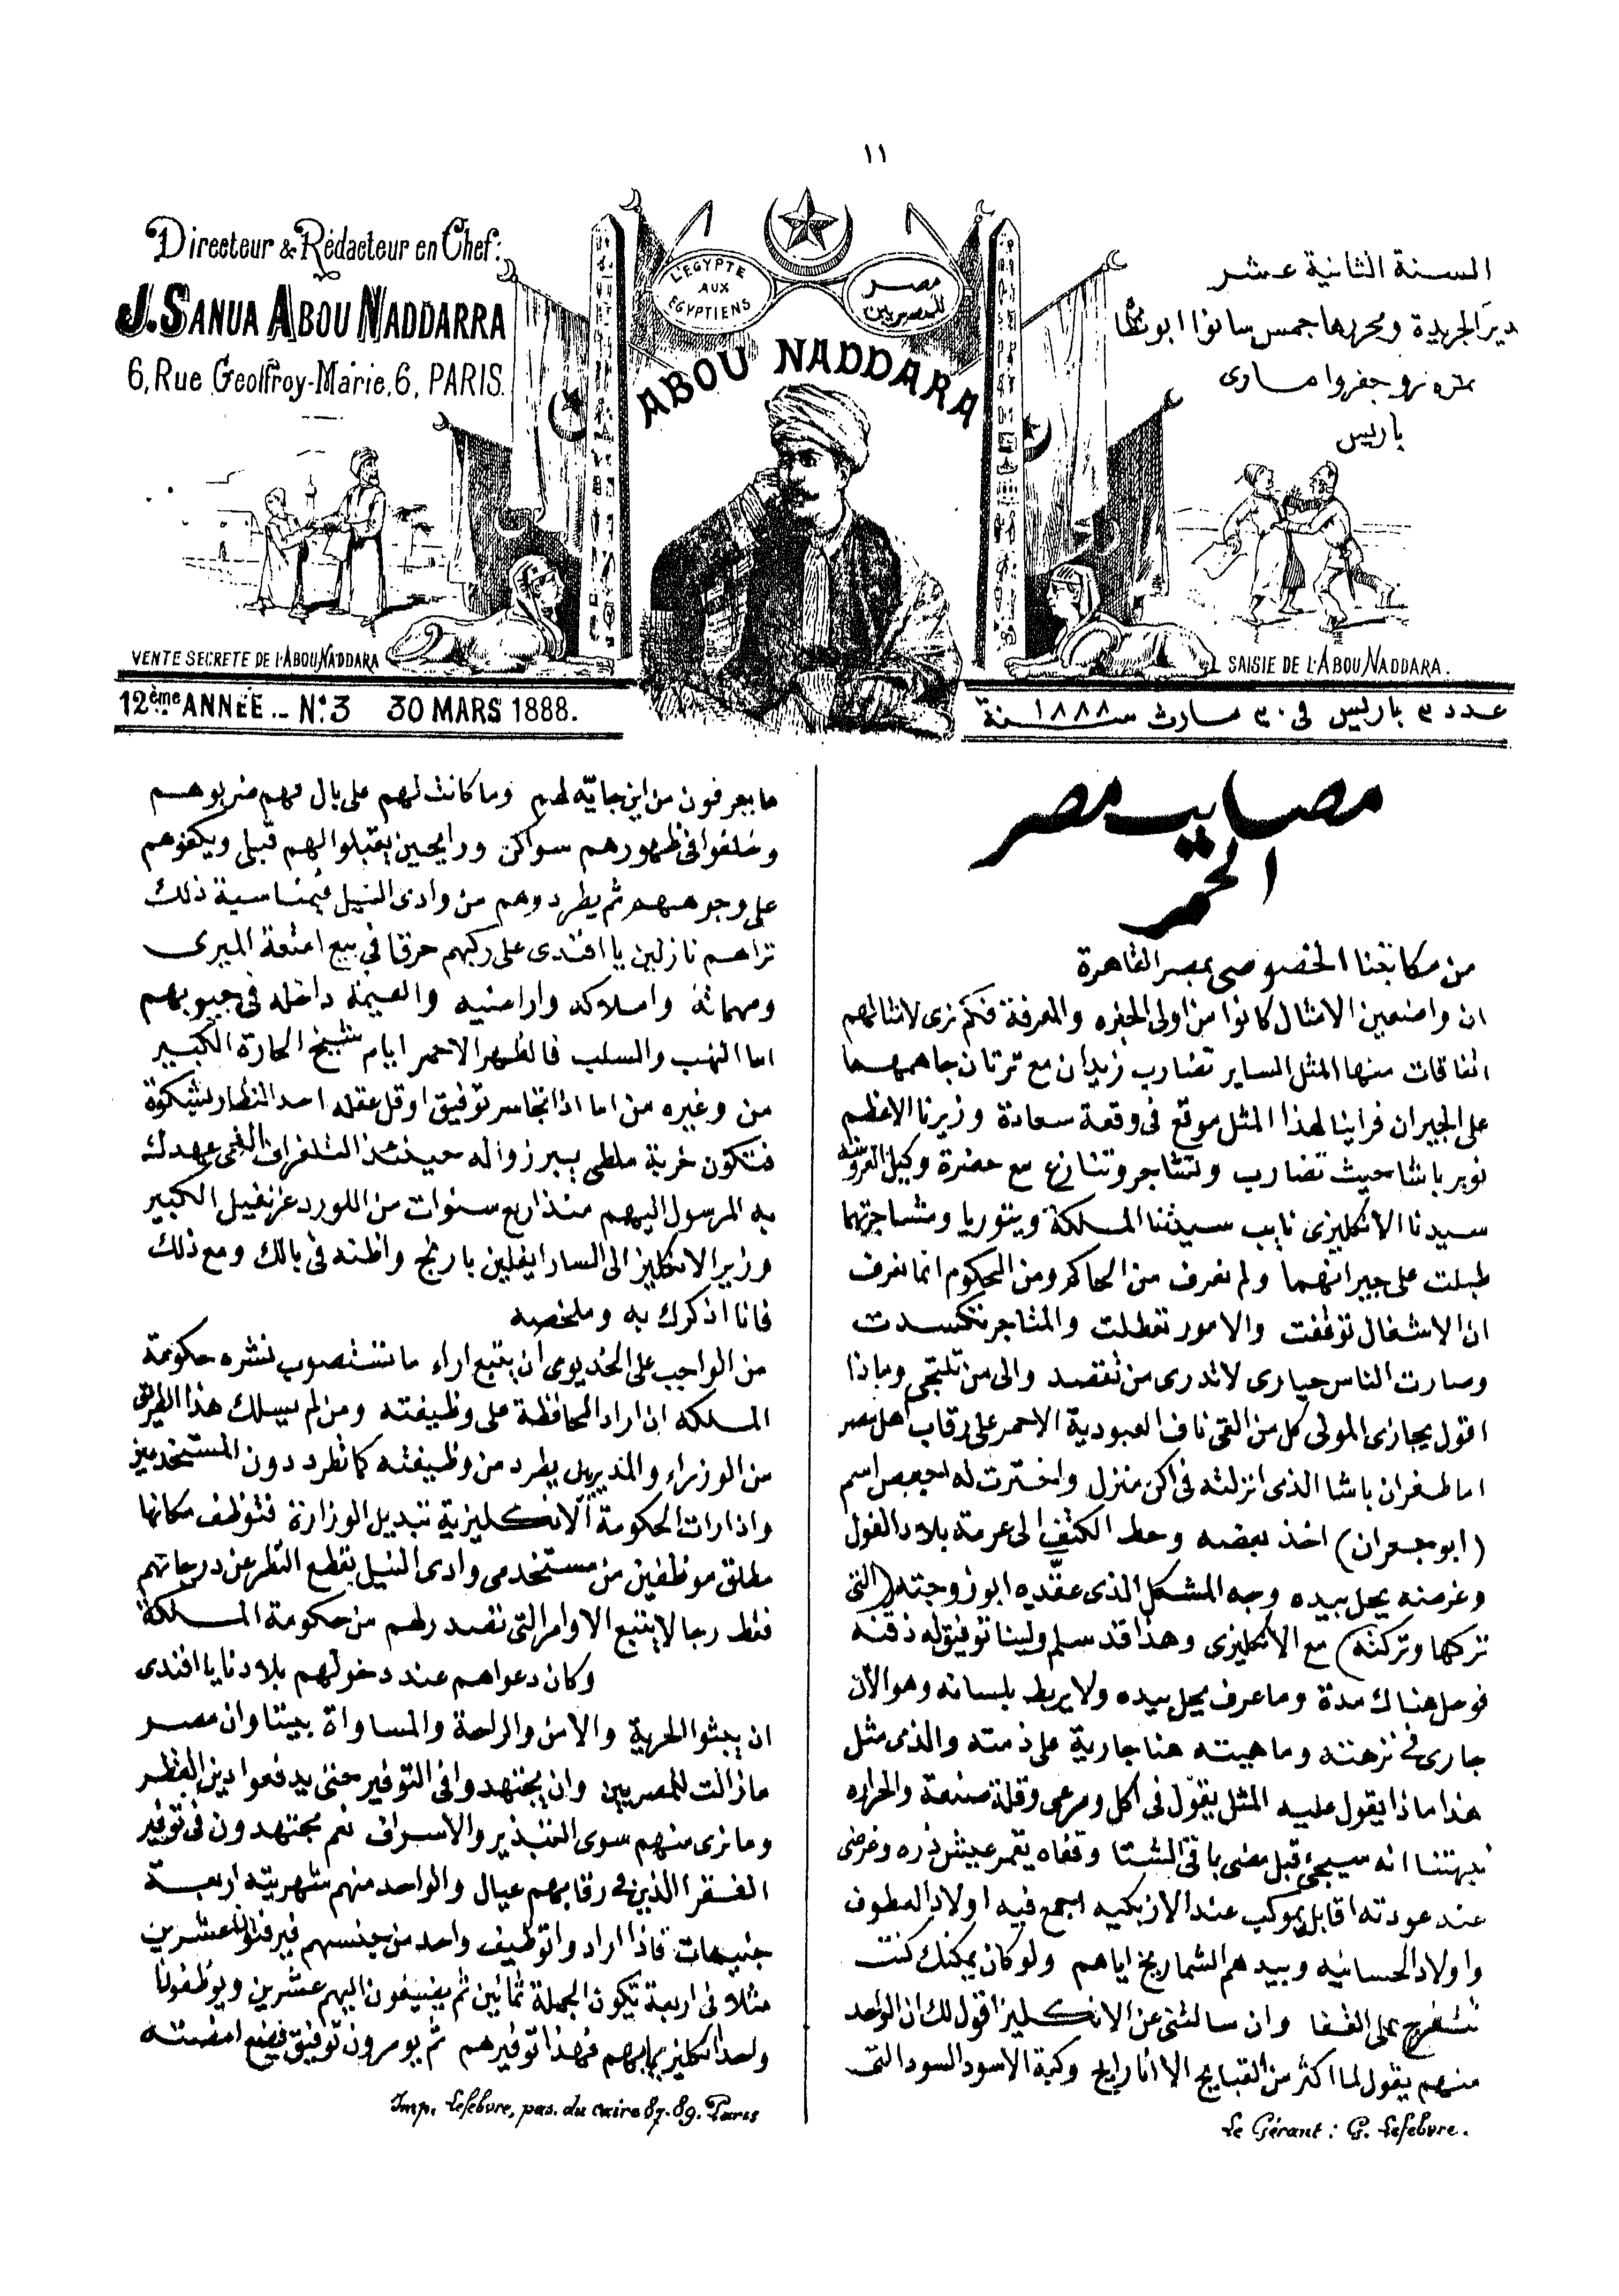 ١١
Directeur & Rédacteur en Chef:
J. SANUA ABOU NADDARRA
6, Rue Geoffroy-Marie, 6, PARIS.
L'EGYPTE
AUX
EGYPTIENS
مصر
للمصريين
ABOU NADDARA
السنة الثانية عشر
مدير الجريدة ومحررها جمس سانوا ابو نظارة
نمره ٦ رو جفروا مارى
باريس
VENTE SECRETE DE L'ABOU NADDARA
SAISIE DE L'ABOU NADDARA.
12ème ANNÉE _ No. 3 30 MARS 1888.
عدد ٣ باريس فى ٣٠ مارث سنة ١٨٨٨
مصايب مصر
الحمر
من مكاتبنا الخصوصى بمصر القاهرة
ان واضعين الامثال كانوا من اولى الخبره والمعرفة فكم نرى لامثالهم
اتفاقات منها المثل الساير تضارب زيدان مع ترتان جا همهما
على الجيران فراينا لهذا المثل موقع فى وقعة سعادة وزيرنا الاعظم
نوبر باشا حيث تضارب وتشاجر وتنازع مع حضرة وكيل
سيدنا الانكليزى نايب سيدتنا الملكة ويتوريا ومشاجرتهما
طبلت على جيرانهما ولم نعرف من الحاكم ومن المحكوم انما نعرف
ان الاشغال توقفت والامور تعطلت والمتاجر تكسدت
وصارت الناس حيارى لاتدرى من تقصد والى من تلتجى وماذا
اقول يجازى المولى كل من القى ناف العبودية الاحمر على رقاب اهل مصر
اما طغران باشا الذى انزلته فى اكن منزل واخترت له اسم
(ابو جعران) اخذ بعضه وحط الكتف الى عرمة بلاد الفول
وغرضه يحل بيده وجه المشكل الذى عقّده ابو زوجته (التى
تركها وتركته) مع الانكليزى وهذا قد سلم ولينا توفيق له ذقنه
فوصل هناك مدة وما عرف يحل بيده ولا يربط بلسانه وهو الآن
جارى فى نزهته وماهيته هنا جارية على ذمته والذى مثل
هذا ماذا يقول عليه المثل يقول فى اكل ومرعى وقلة صنعة والحراره
نبهتنا انه سيجئ قبل مضى باقى الشتا وقفاه يقمر عيش ذره وغرضى
عند عودته اقابله بموكب عند الازبكيه اجمع فيه اولاد العطوف
واولاد الحسانيه وبيدهم الشماريخ اياهم ولو كان يمكنك كنت
تتفرج على القفا وان سالتنى عن الانكليز اقول لك ان الواحد
منهم يقول لما اكثر من القبايح الا انا رايح وكبة الاسود السود التى
Le Gérant: G. Lefebvre.
ما يعرفون من اين جايّه لهم وما كانت لهم على بال فهم ضربوهم
وخلفوا فى ظهورهم سواكن ورايحين يقبلوا لهم قبلى ويكفوهم
على وجوههم ثم يطردوهم من وادى النيل فبمناسبة ذلك
تراهم نازلين يا افندى على ركبهم حرقا فى بيع امتعة الميرى
ومهماته واملاكه واراضيه والقيمة داخله فى جيوبهم
اما النهب والسلب فالظهر الاحمر ايام شيخ الحارة الكبير
من وغيره من اما اذا تجاسر توفيق او قل عقله احد النظار لشكوة
فتكون خربة ملطى بسبر زواله حينئذ التلغراف
به المرسول اليهم منذ اربع سنوات من اللورد غرنفيل الكبير
وزير الانكليز الى السار ايفلين بارنج واظنه فى بالك ومع ذلك
فانا اذكرك به وملخصه
من الواجب على الخديوى ان يتبع اراء ما تستصوب نشره حكومة
الملكه ان اراد المحافظة على وظيفته ومن لم يسلك هذا الطريق
من الوزراء والمديرين يطرد من وظيفته كما تطرد دون المستخدمين
واذا رات الحكومة الانكليزية تبديل الوزارة فتوظف مكانها
مطلق موظفين من مستخدمى وادى النيل بقطع النظر عن درجاتهم
فقط رجال يتبع الاوامر التى تصدر لهم من حكومة الملكة
وكان دعواهم عند دخولهم بلادنا يا افندى
ان يبثوا الحرية والامن والراحة والمساواة بيننا وان مصر
مازالت للمصريين وان يجتهدوا فى التوفير حتى يدفعوا دين القطر
وما نرى منهم سوى التبذير والاسراف نعم مجتهدون فى توفير
الفقرا الذين فى رقابهم عيال والواحد منهم شهريته اربعة
جنيهات فاذا ارادوا توظيف واحد من جنسهم فيرفتوا عشرين
مثلا فى اربعة تكون الجملة ثمانين ثم يضيفون اليهم عشرين ويوظفون
واحد انكليز بمابهم فهذا توفيرهم ثم يومرون توفيق امضته
Imp. Lefebvre, pas. du Caire 87-89. Paris